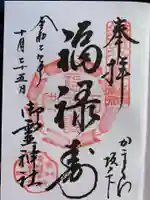 奉拝
かまくら
坂ノ下
福禄寿
令和二年
十月二十五日
御霊神社